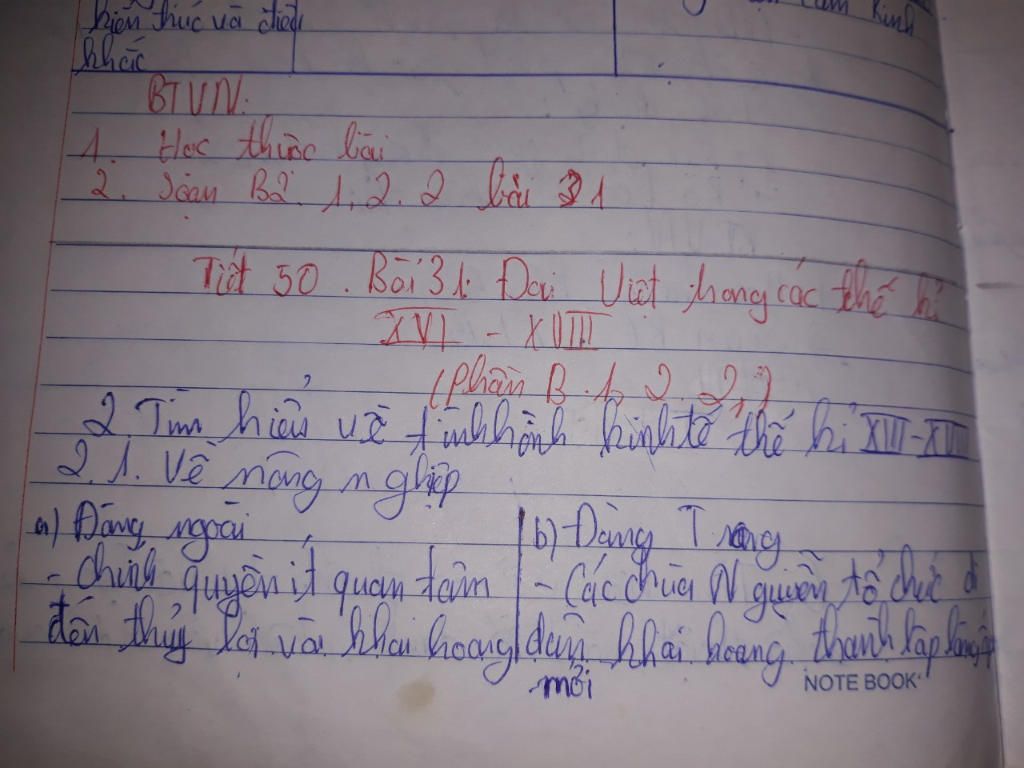 kiện thức và điều
khác
cảm kinh
BTVN:
1. Học thuộc bài
2. Soạn B2. 1, 2. 2 bài 31
Tiết 50. Bài 31: Đại Việt trong các thế kỉ
XVI - XVIII
(Phần B. 1, 2. 2,)
2. Tìm hiểu về tình hình kinh tế thế kỉ XVII-XVIII
2.1. Về nông nghiệp
a) Đàng ngoài
- Chính quyền ít quan tâm
đến thủy lợi và khai hoang
b) Đàng Trong
- Các chúa Nguyễn tổ chức di
dân khai hoang thành lập làng ấp
mới
NOTE BOOK